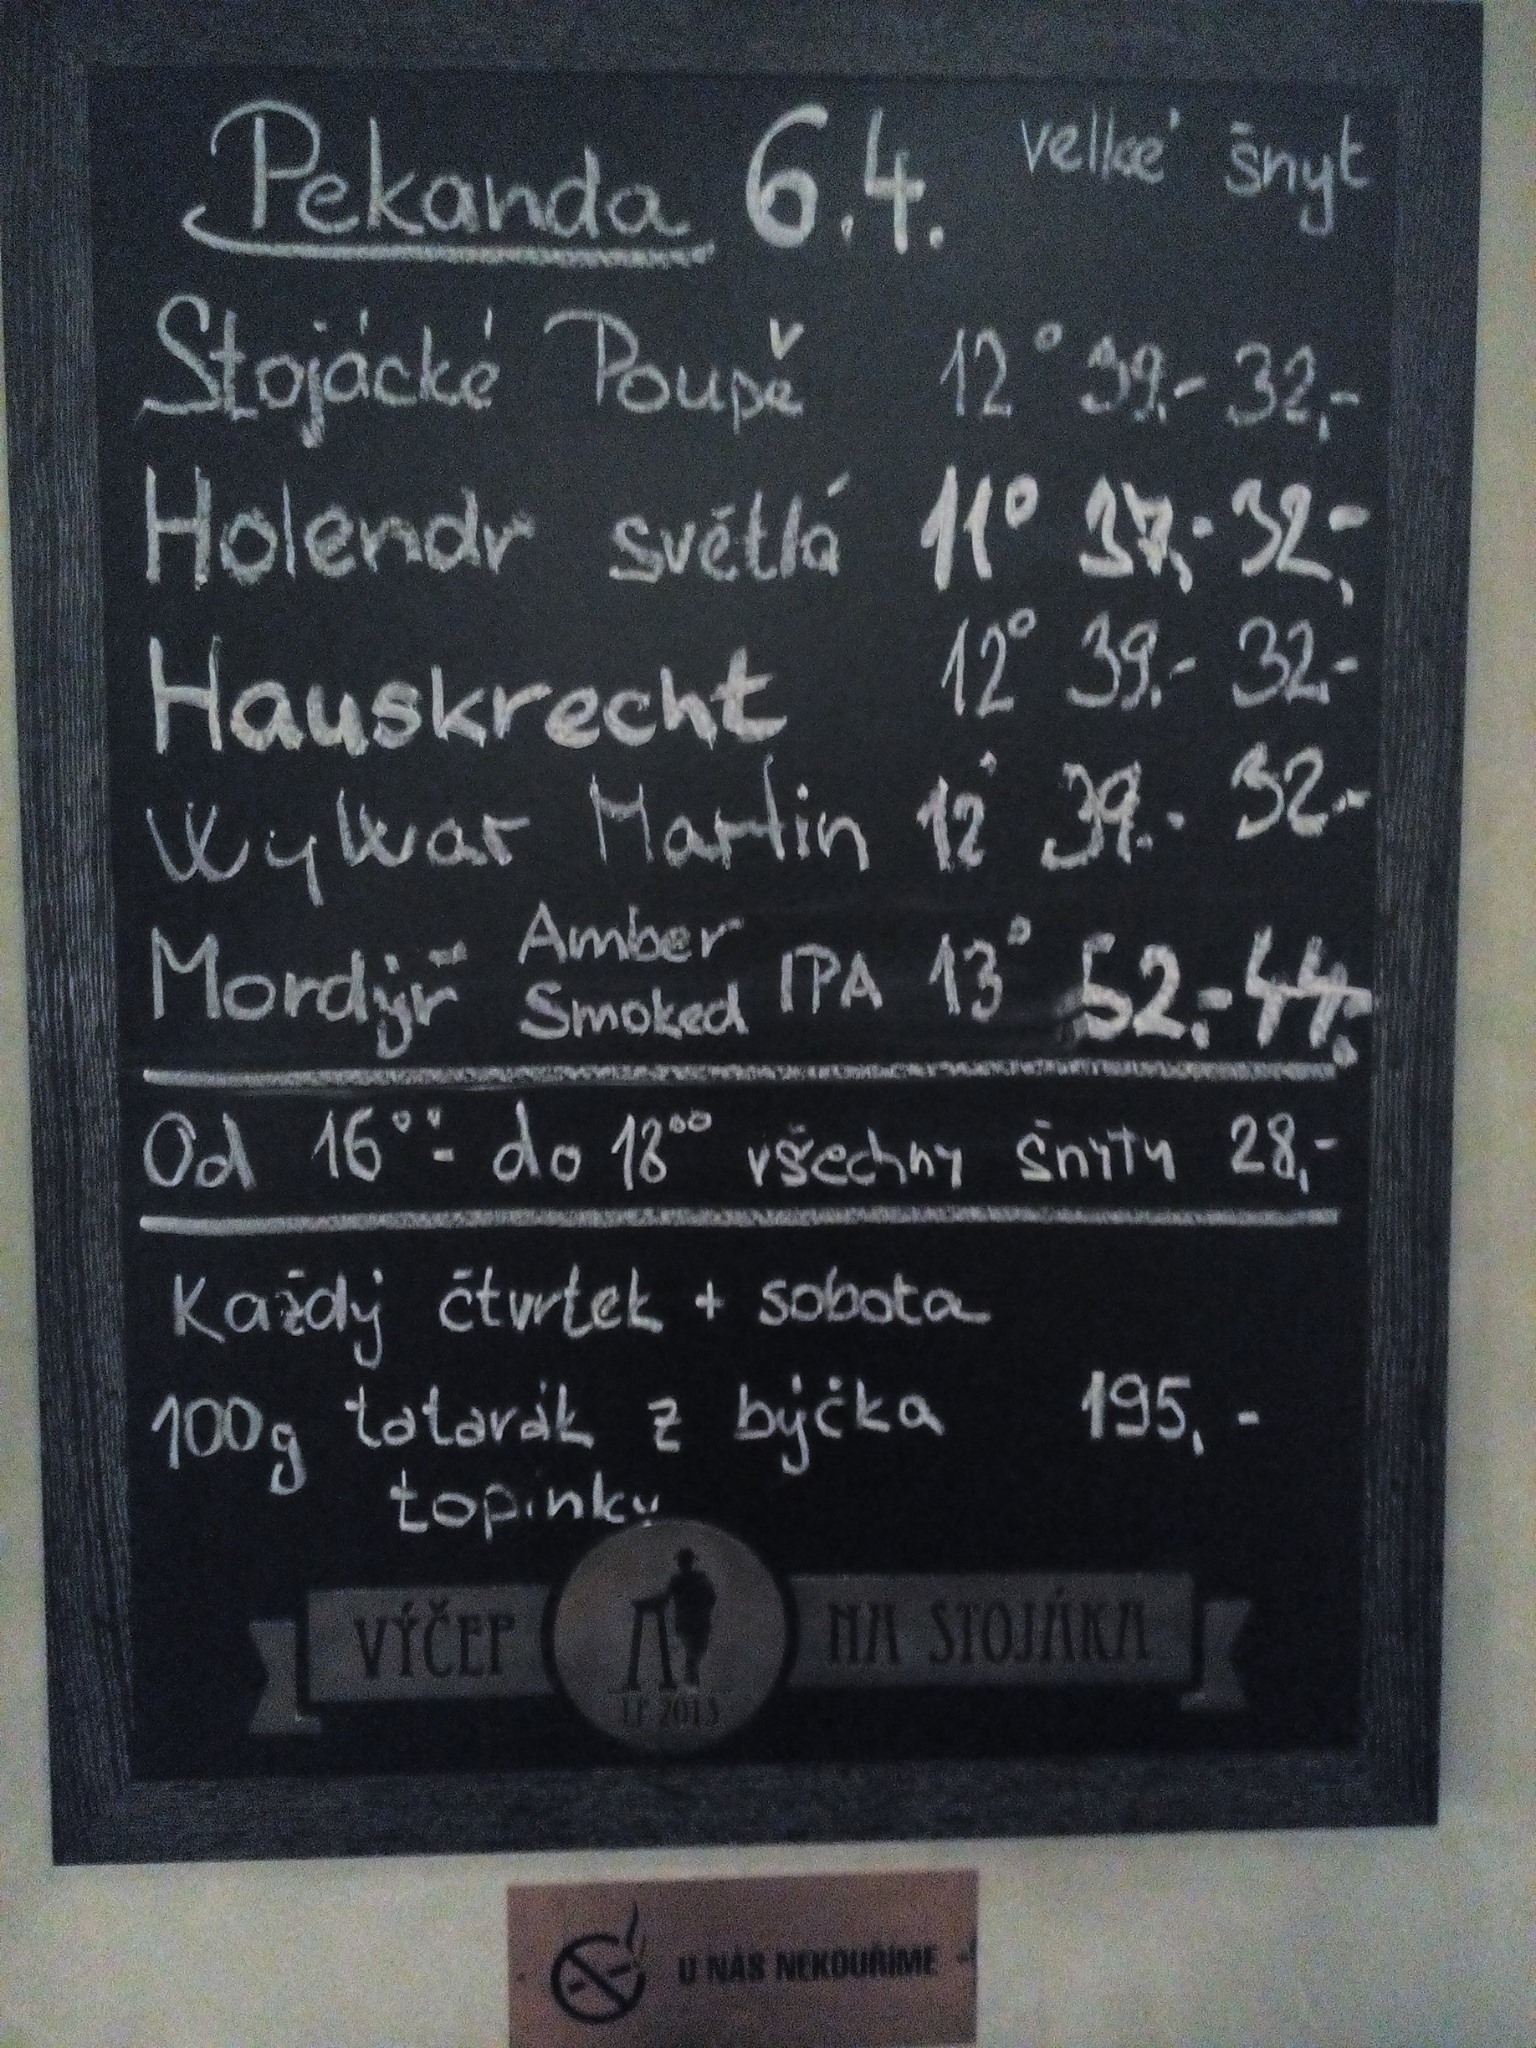 Pekanda 6.4. velké šnyt
Stojácké Poupě 12° 39.- 32,-
Holendr světlá 11° 37,- 32,-
Hauskrecht 12° 39.- 32.-
Wywar Martin 12° 39.- 32.-
Mordýř Amber Smoked IPA 13° 52,- 44,-
Od 16°° - do 18°° všechny šnyty 28,-
Každý čtvrtek + sobota
100g tatarák z býčka 195,-
topinky
VÝČEP NA STOJÁKA
LP 2013
U NÁS NEKOUŘÍME